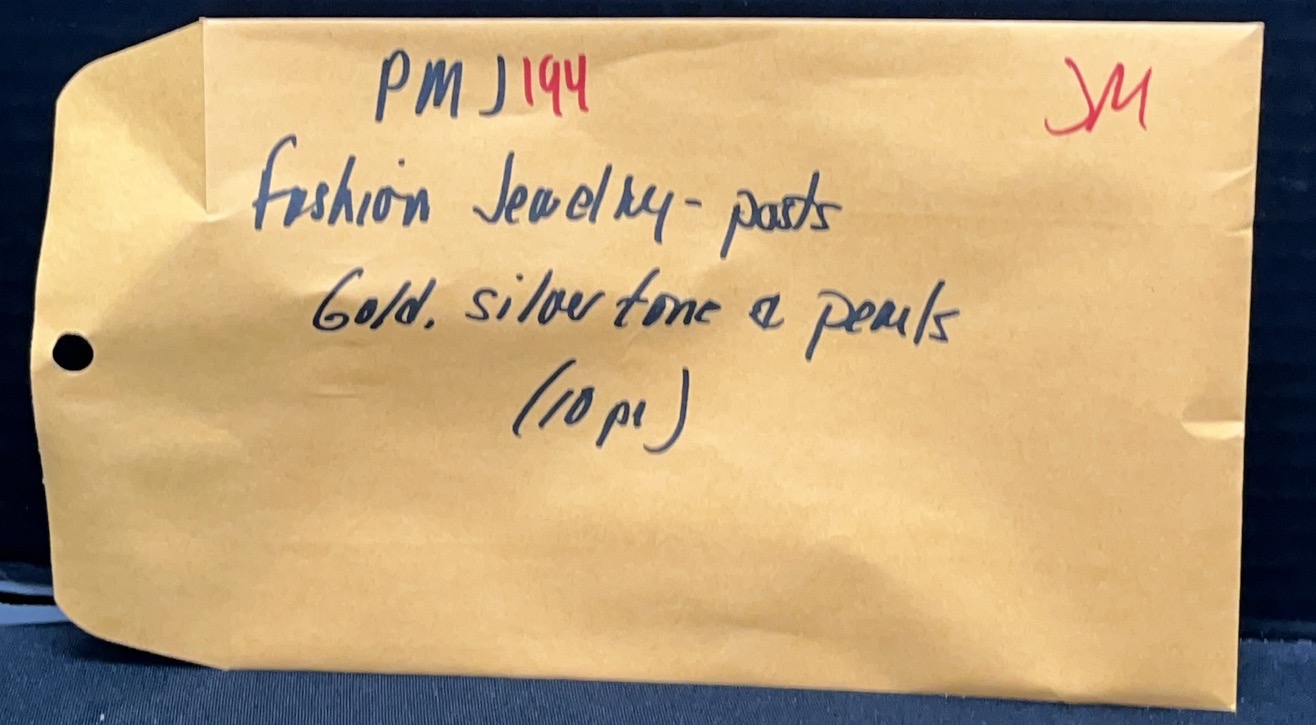 PMJ194
JM
Fashion Jewelry - posts
Gold, silver tone & pearls
(10 pr)